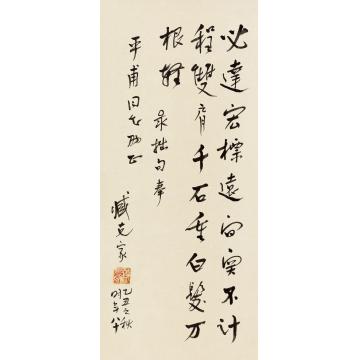 必達宏標遠不计
程雙肩千石重白髮万
根輕 录拙句奉
平甫同志正
臧克家
乙丑之秋
时年八十